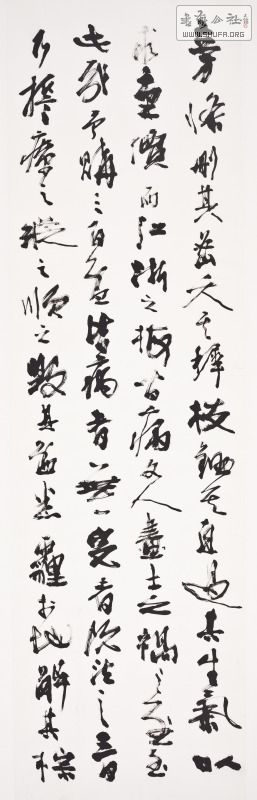 旁條刪其密夭其稺枝鋤其直遏其生氣以
求重價而江浙之梅皆病文人畫士之禍之烈至
此哉予購三百盆皆病者無一完者既泣之三日
乃誓療之縱之順之毀其盆悉薶於地解其棕
書法公社
WWW.SHUFA.ORG